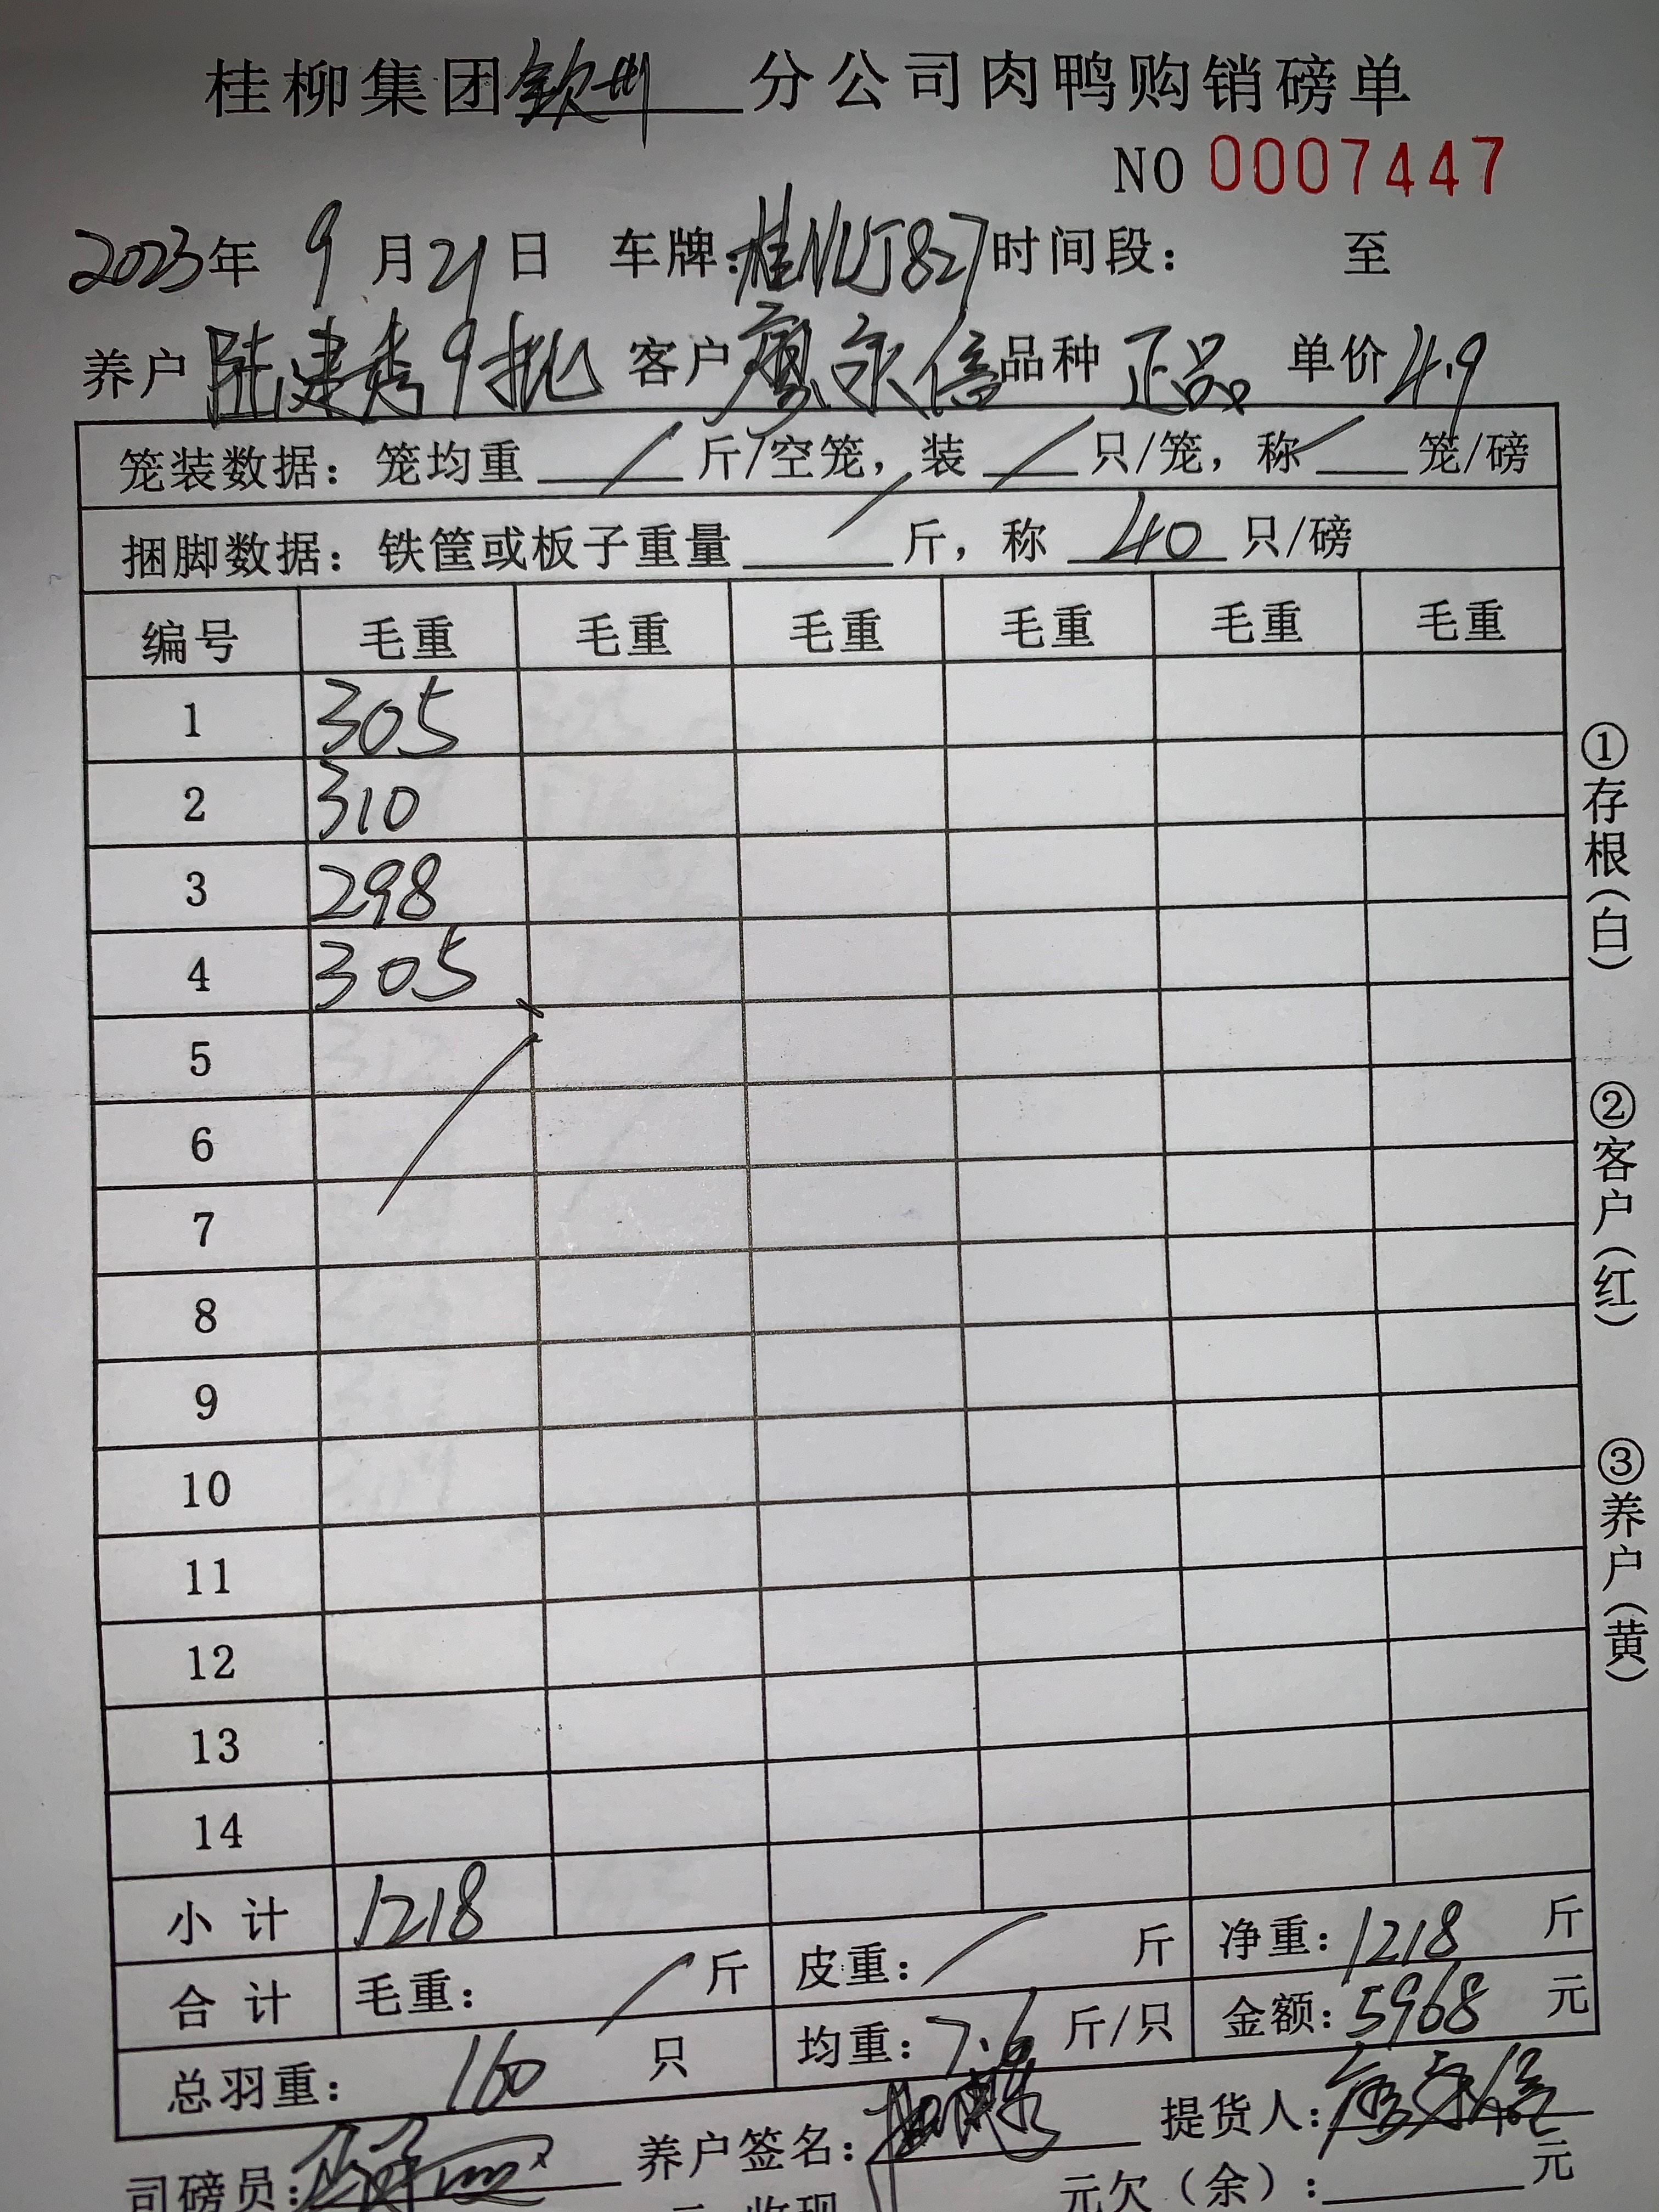 桂柳集团钦州分公司肉鸭购销磅单
NO 0007447
2023年 9月21日 车牌:桂NUJ827时间段: 至
养户 陆建秀9批 客户 廖永信 品种 正品 单价 4.9
笼装数据: 笼均重 / 斤/空笼, 装 / 只/笼, 称 / 笼/磅
捆脚数据: 铁筐或板子重量 / 斤, 称 40 只/磅
编号 毛重 毛重 毛重 毛重 毛重 毛重
1 305
2 310
3 298
4 305
5
6
7
8
9
10
11
12
13
14
小计 1218
合计 毛重: / 斤 皮重: / 斤 净重: 1218 斤
总羽重: 160 只 均重: 7.6 斤/只 金额: 5968 元
司磅员: 养户签名: 提货人: 廖永信
元 收现 元欠(余): 元
①存根(白)
②客户(红)
③养户(黄)